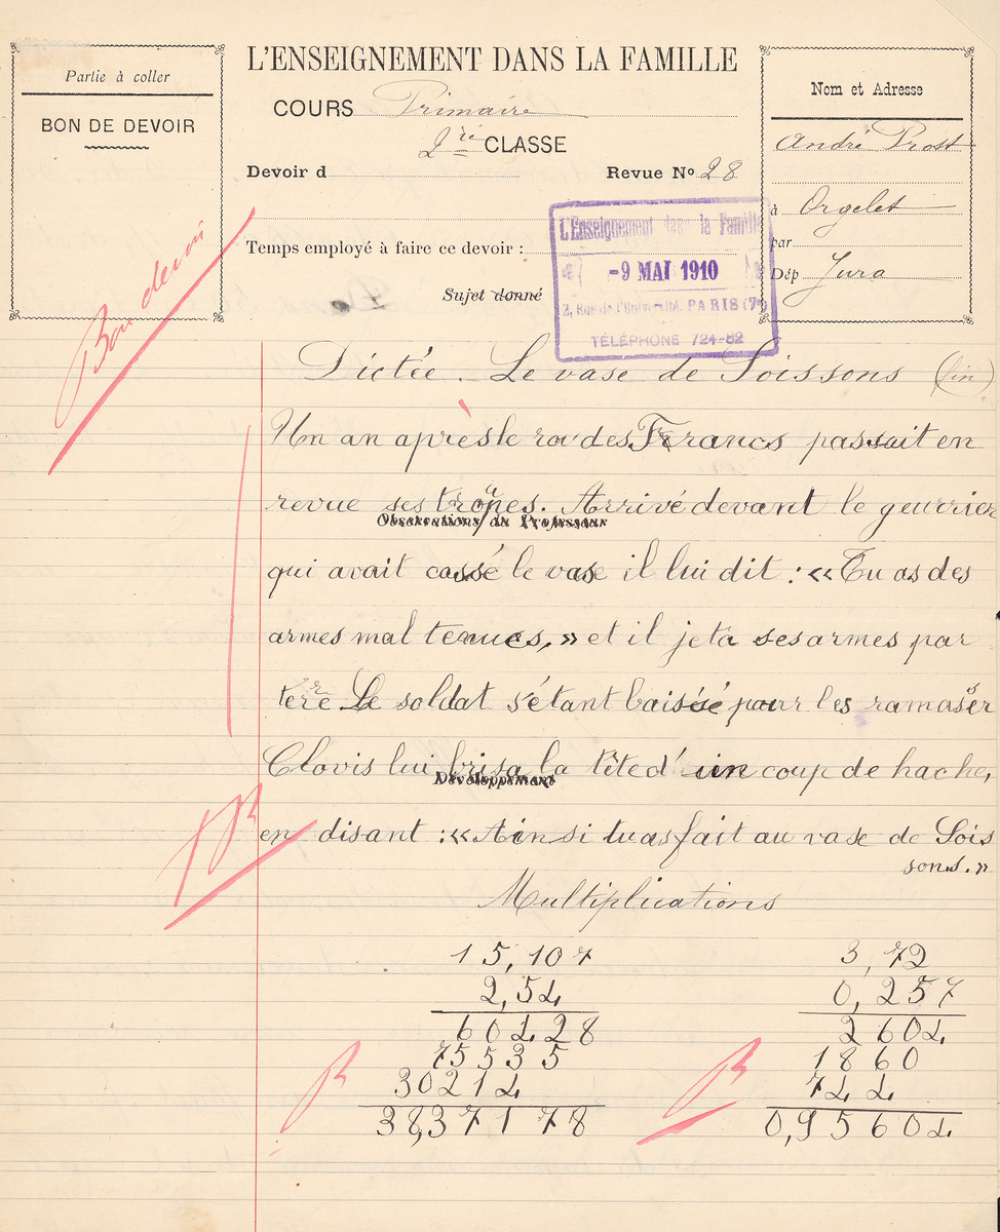 Partie à coller
BON DE DEVOIR
L'ENSEIGNEMENT DANS LA FAMILLE
COURS Primaire
2re CLASSE
Devoir d
Revue No 28
Temps employé à faire ce devoir :
Sujet donné
Nom et Adresse
André Prost
à Orgelet
par
Dép Jura
L'Enseignement dans la Famille
-9 MAI 1910
2, Rue de l'Université, PARIS (7e)
TÉLÉPHONE 724-82
Bon devoir
Dictée. Le vase de Soissons (fin)
Un an après le roi des Francs passait en
revue ses troupes. Arrivé devant le geurrier
Observations du Professeur
qui avait cassé le vase il lui dit : « Tu as des
armes mal tenues, » et il jeta ses armes par
terre Le soldat s'étant baissé pour les ramasser
Clovis lui brisa la tête d'un coup de hache,
Développement
en disant : « Ainsi tu as fait au vase de Sois
sons. »
TB
Multiplications
15,107
2,54
60428
75535
30214
38,37178
B
3,72
0,257
2604
1860
744
0,95604
B